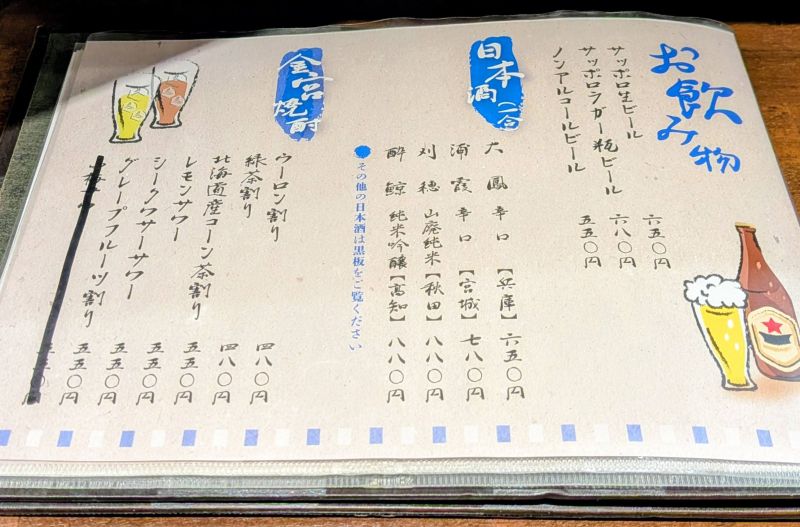 お飲み物
サッポロ生ビール 六五〇円
サッポロラガー瓶ビール 六八〇円
ノンアルコールビール 五五〇円
日本酒(一合)
大鳳 辛口【兵庫】六五〇円
浦霞 辛口【宮城】七八〇円
刈穂 山廃純米【秋田】八八〇円
酔鯨 純米吟醸【高知】八八〇円
●その他の日本酒は黒板をご覧ください
金宮焼酎
ウーロン割り 四八〇円
緑茶割り 四八〇円
北海道産コーン茶割り 五五〇円
レモンサワー 五五〇円
シークワサーサワー 五五〇円
グレープフルーツ割り 五五〇円
五五〇円